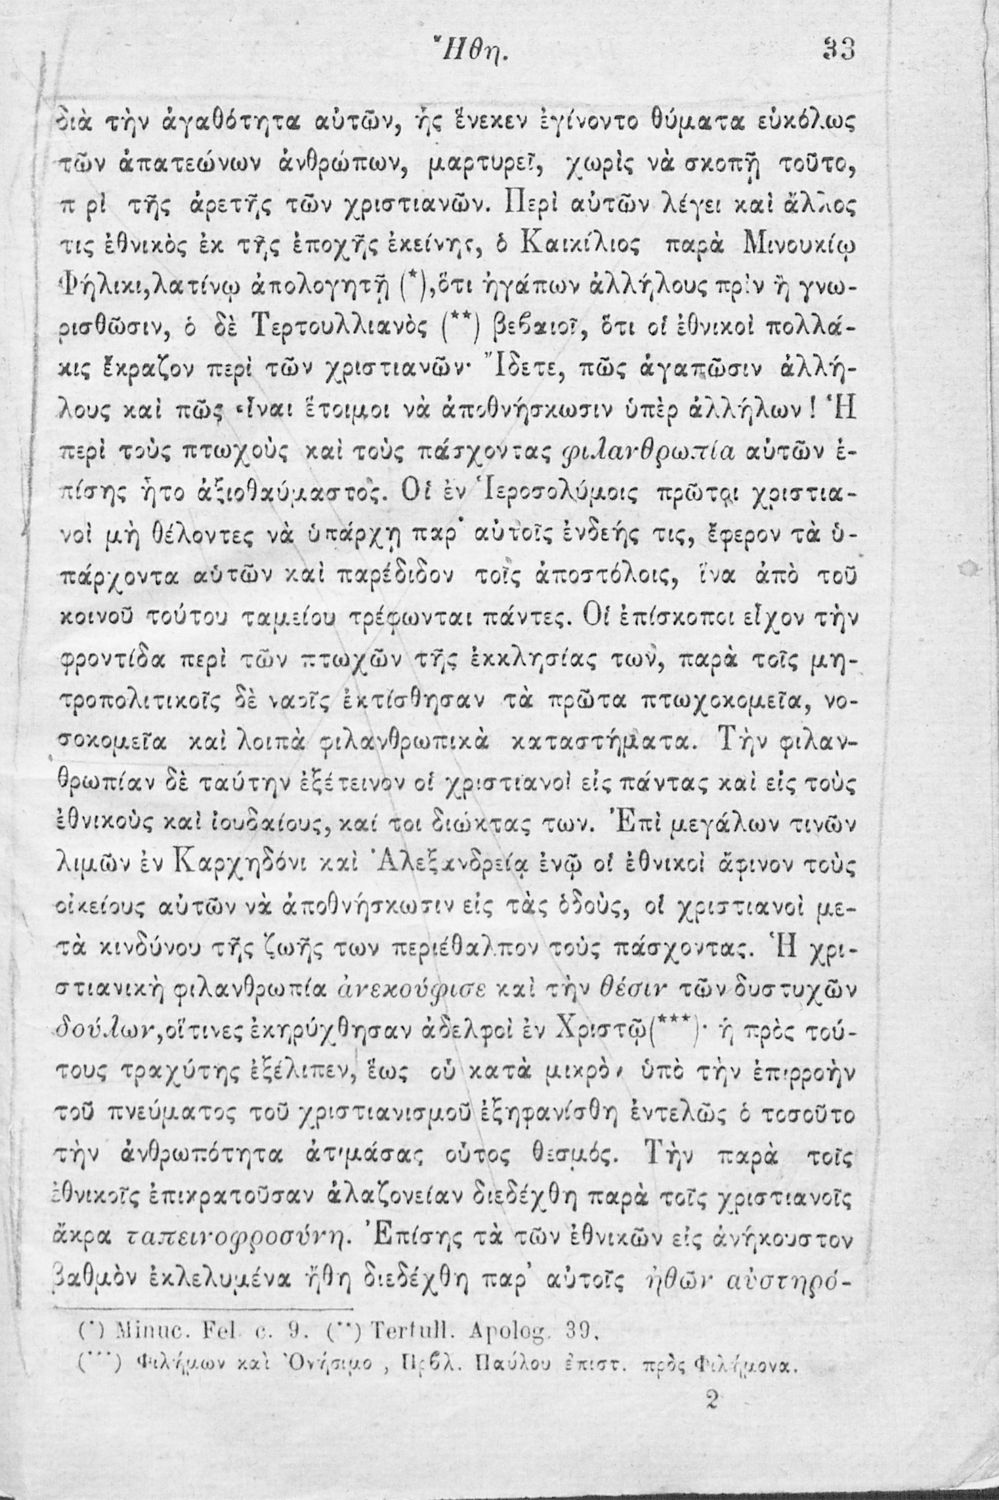 Ἤθη. 33
διὰ τὴν ἀγαθότητα αὐτῶν, ἧς ἕνεκεν ἐγίνοντο θύματα εὐκόλως
τῶν ἀπατεώνων ἀνθρώπων, μαρτυρεῖ, χωρὶς νὰ σκοπῇ τοῦτο,
π ρὶ τῆς ἀρετῆς τῶν χριστιανῶν. Περὶ αὐτῶν λέγει καὶ ἄλλος
τις ἐθνικὸς ἐκ τῆς ἐποχῆς ἐκείνης, ὁ Καικίλιος παρὰ Μινουκίῳ
Φήλικι, λατίνῳ ἀπολογητῇ (*), ὅτι ἠγάπων ἀλλήλους πρὶν ἢ γνω-
ρισθῶσιν, ὁ δὲ Τερτουλλιανὸς (**) βεβαιοῖ, ὅτι οἱ ἐθνικοὶ πολλά-
κις ἔκραζον περὶ τῶν χριστιανῶν· Ἴδετε, πῶς ἀγαπῶσιν ἀλλή-
λους καὶ πῶς εἶναι ἕτοιμοι νὰ ἀποθνήσκωσιν ὑπὲρ ἀλλήλων! Ἡ
περὶ τοὺς πτωχοὺς καὶ τοὺς πάσχοντας φιλανθρωπία αὐτῶν ἐ-
πίσης ἦτο ἀξιοθαύμαστος. Οἱ ἐν Ἱεροσολύμοις πρῶτοι χριστια-
νοὶ μὴ θέλοντες νὰ ὑπάρχῃ παρ' αὐτοῖς ἐνδεής τις, ἔφερον τὰ ὑ-
πάρχοντα αὑτῶν καὶ παρέδιδον τοῖς ἀποστόλοις, ἵνα ἀπὸ τοῦ
κοινοῦ τούτου ταμείου τρέφωνται πάντες. Οἱ ἐπίσκοποι εἶχον τὴν
φροντίδα περὶ τῶν πτωχῶν τῆς ἐκκλησίας των, παρὰ τοῖς μη-
τροπολιτικοῖς δὲ ναοῖς ἐκτίσθησαν τὰ πρῶτα πτωχοκομεῖα, νο-
σοκομεῖα καὶ λοιπὰ φιλανθρωπικὰ καταστήματα. Τὴν φιλαν-
θρωπίαν δὲ ταύτην ἐξέτεινον οἱ χριστιανοὶ εἰς πάντας καὶ εἰς τοὺς
ἐθνικοὺς καὶ ἰουδαίους, καί τοι διώκτας των. Ἐπὶ μεγάλων τινῶν
λιμῶν ἐν Καρχηδόνι καὶ Ἀλεξανδρείᾳ ἐνῷ οἱ ἐθνικοὶ ἄφινον τοὺς
οἰκείους αὐτῶν νὰ ἀποθνήσκωσιν εἰς τὰς ὁδοὺς, οἱ χριστιανοὶ με-
τὰ κινδύνου τῆς ζωῆς των περιέθαλπον τοὺς πάσχοντας. Ἡ χρι-
στιανικὴ φιλανθρωπία ἀνεκούφισε καὶ τὴν θέσιν τῶν δυστυχῶν
δούλων, οἵτινες ἐκηρύχθησαν ἀδελφοὶ ἐν Χριστῷ(***)· ἡ πρὸς τού-
τους τραχύτης ἐξέλιπεν, ἕως οὗ κατὰ μικρὸν ὑπὸ τὴν ἐπιρροὴν
τοῦ πνεύματος τοῦ χριστιανισμοῦ ἐξηφανίσθη ἐντελῶς ὁ τοσοῦτο
τὴν ἀνθρωπότητα ἀτιμάσας οὗτος θεσμός. Τὴν παρὰ τοῖς
ἐθνικοῖς ἐπικρατοῦσαν ἀλαζονείαν διεδέχθη παρὰ τοῖς χριστιανοῖς
ἄκρα ταπεινοφροσύνη. Ἐπίσης τὰ τῶν ἐθνικῶν εἰς ἀνήκουστον
βαθμὸν ἐκλελυμένα ἤθη διεδέχθη παρ' αὐτοῖς ἠθῶν αὐστηρό-
(*) Minuc. Fel. c. 9. (**) Tertull. Apolog. 39.
(***) Φιλήμων καὶ Ὀνήσιμο , Πρβλ. Παύλου ἐπιστ. πρὸς Φιλήμονα.
2